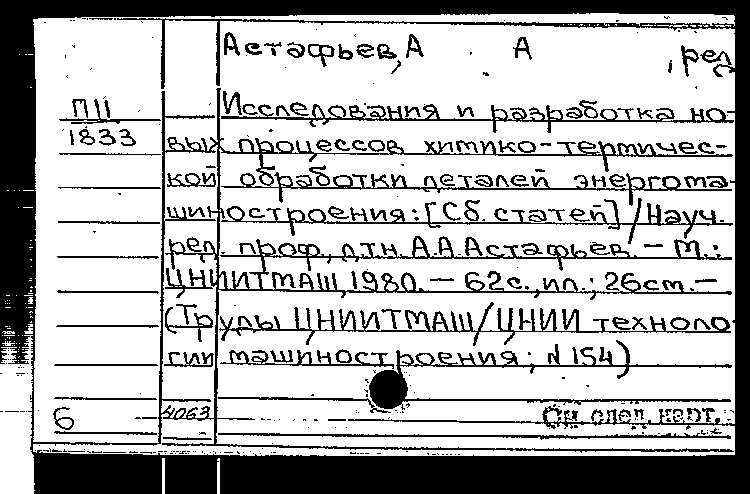 Астафьев, А А , ред
П11
1833
Исследования и разработка но-
вых процессов химико-термичес-
кой обработки деталей энергома-
шиностроения: [Сб. статей] / Науч.
ред. проф., д.т.н. А.А.Астафьев. – М.:
ЦНИИТМАШ, 1980. – 62с., ил.; 26см. –
(Труды ЦНИИТМАШ/ЦНИИ техноло-
гии машиностроения; N 154)
6 4063 См. след. карт.